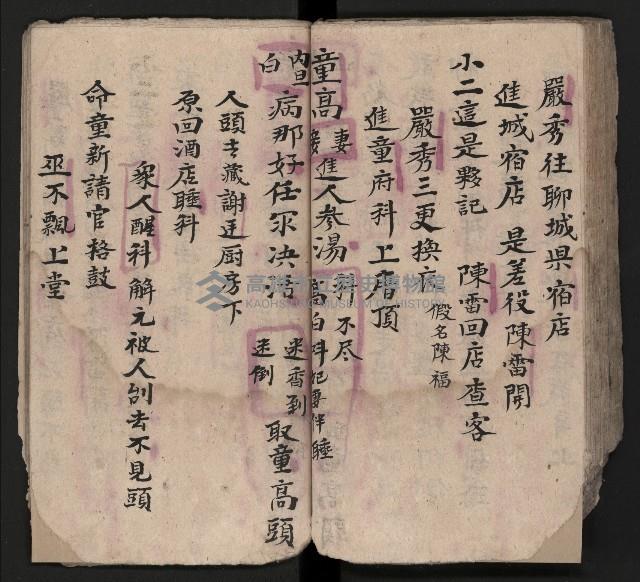 嚴秀往聊城県宿店
進城宿店 是差役陳雷開
小二這是夥記 陳雷回店查客
嚴秀三更換衣 假名陳福
進童府科上屋頂
童高妻接進人參湯 不尽
白科 妻伴睡
内白 病那好任尔决活 迷香到 迷倒 取童高頭
人頭去藏謝廷厨房下
原回酒店睡科
衆人醒科解元被人刣去不見頭
命童新請官格鼓
巫不飄上堂
高雄市立歷史博物館
KAOHSIUNG MUSEUM OF HISTORY